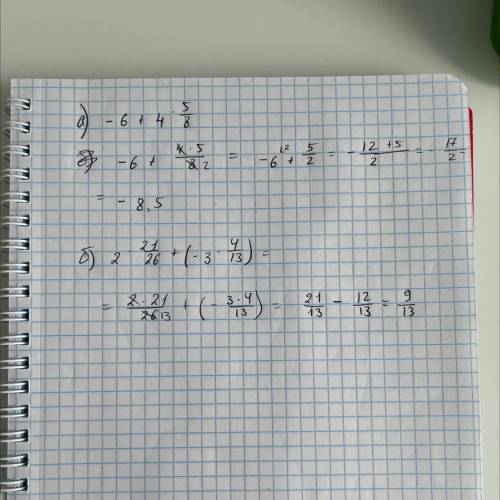 а) -6 + 4 · 5/8
б) -6 + 4·5/8 2 = -6 12 + 5/2 = - 12+5/2 = - 17/2 =
= - 8,5
б) 2 · 21/26 + (-3 · 4/13) =
= 2·21/26 13 + (- 3·4/13) = 21/13 - 12/13 = 9/13